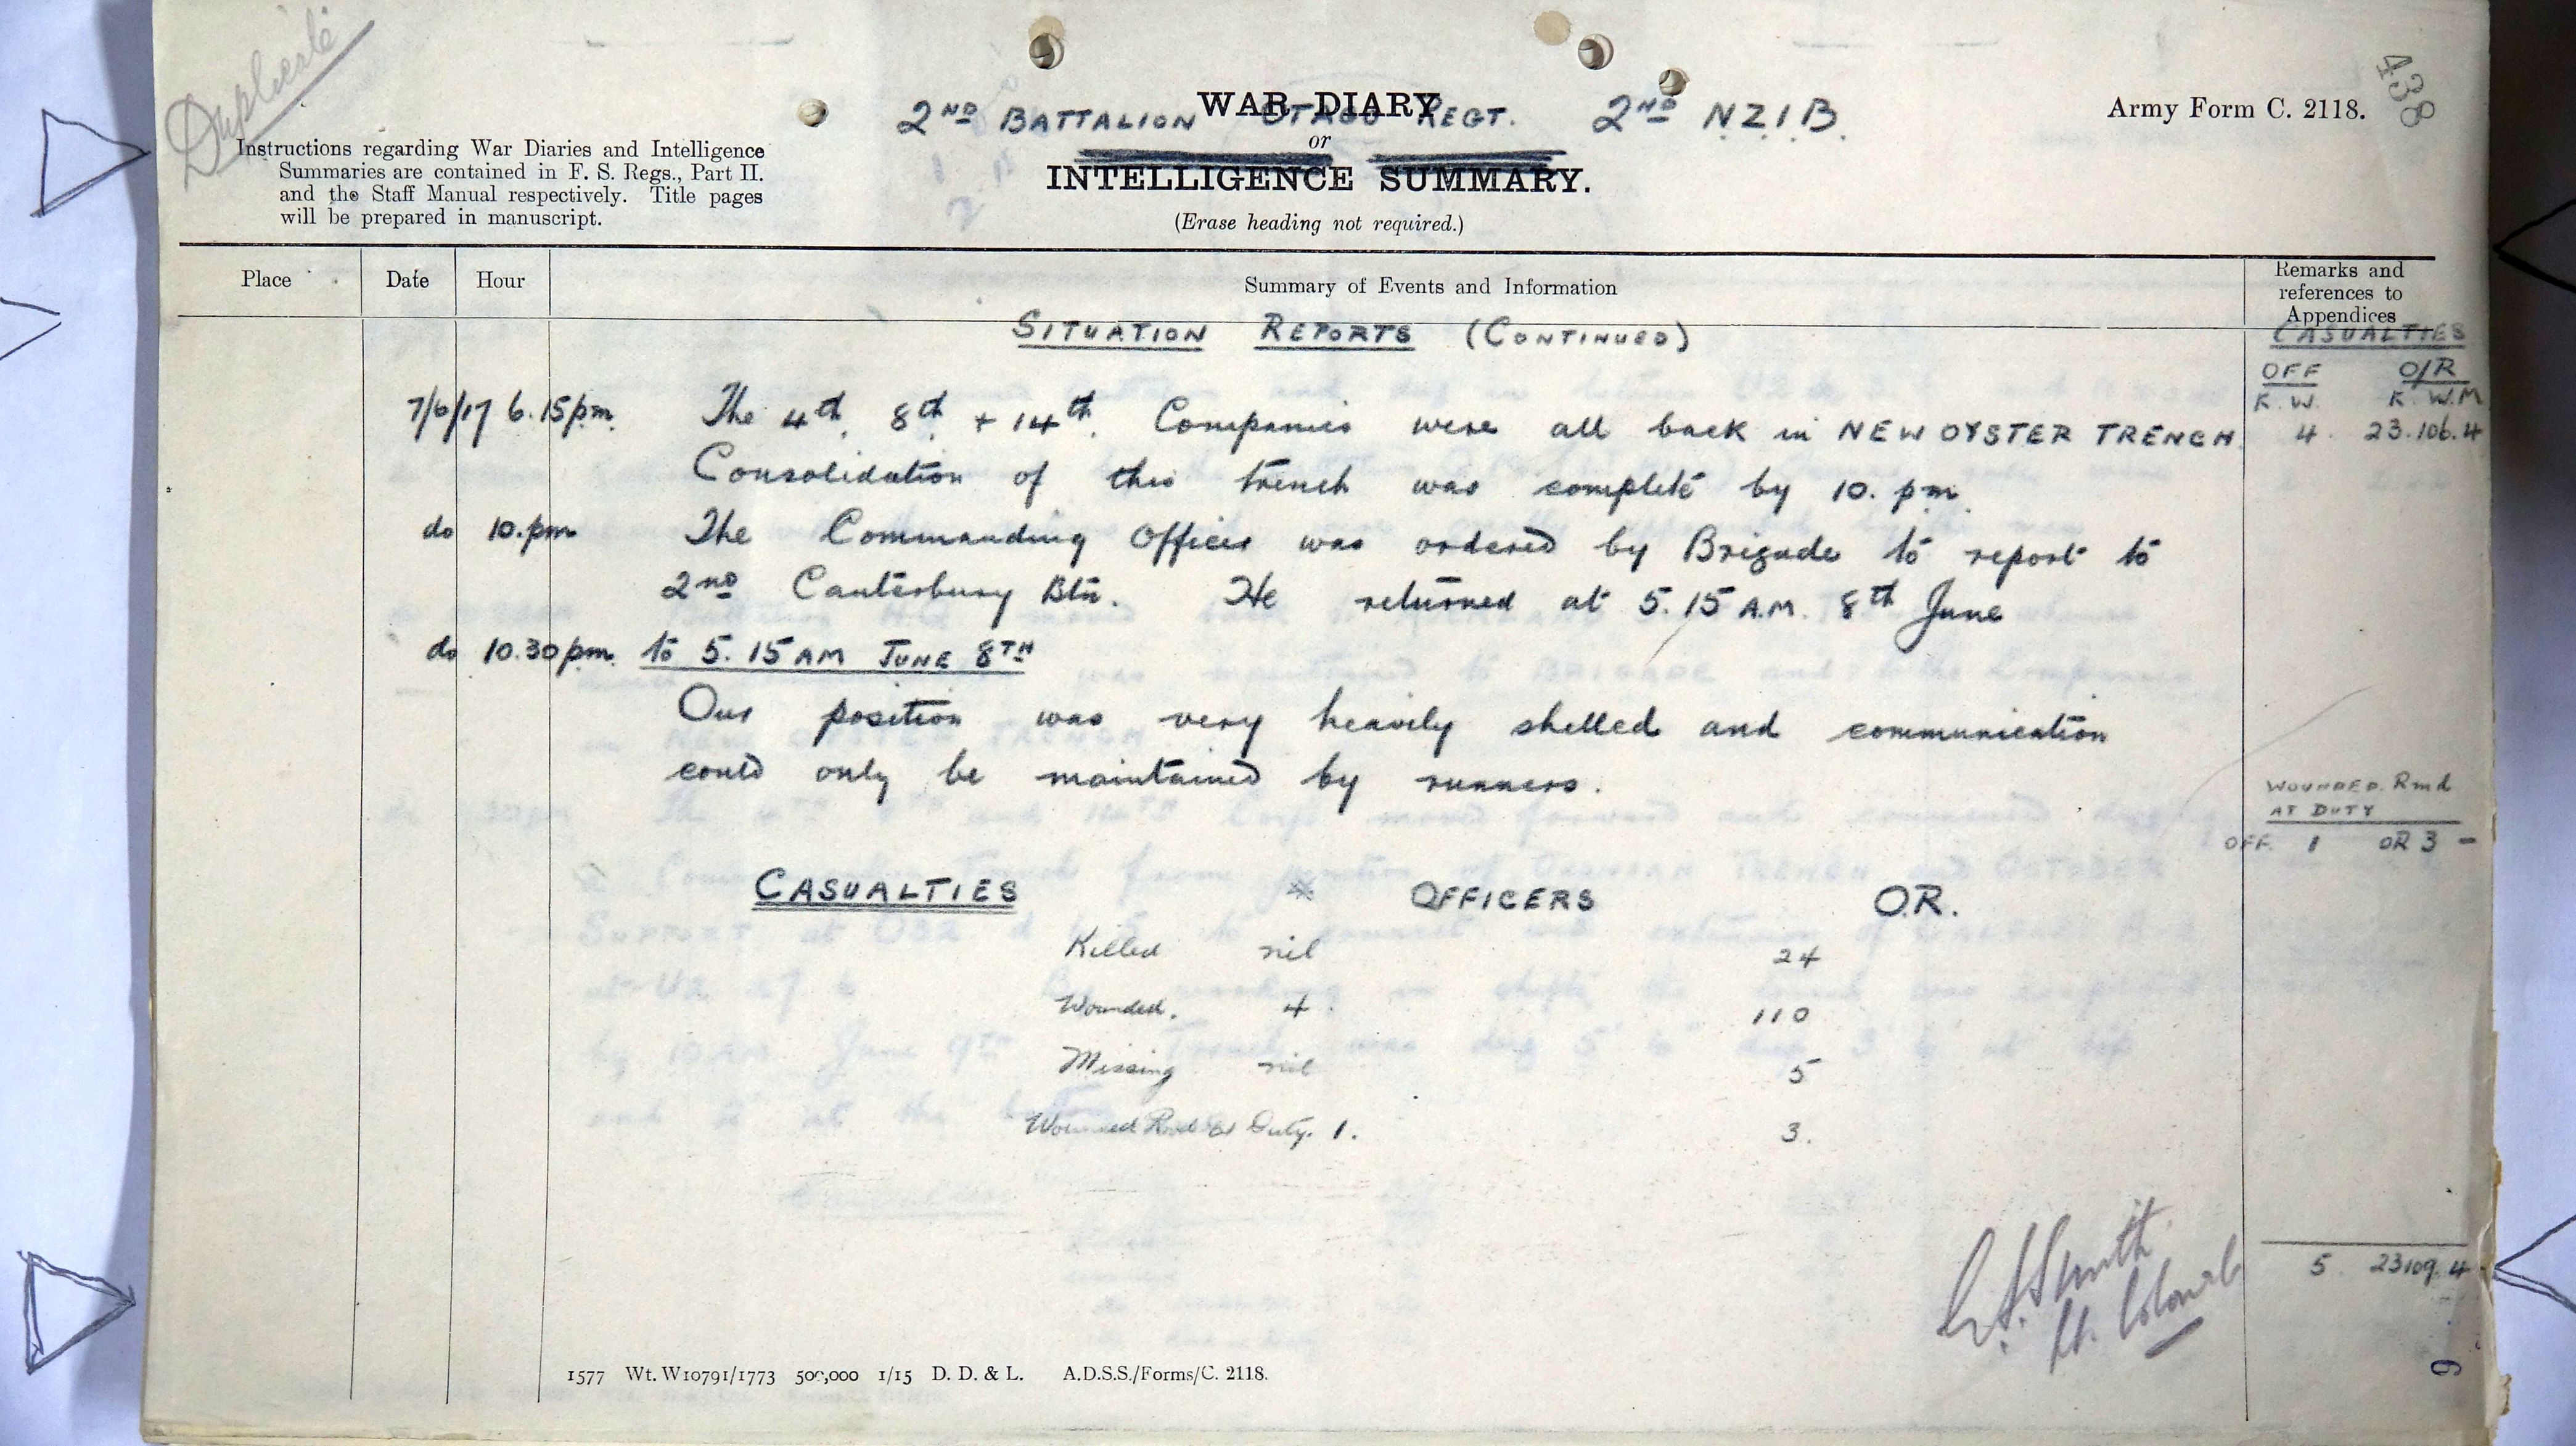 Duplicate
438
2ND BATTALION OTAGO REGT. 2ND N.Z.I.B.
WAR DIARY
or
INTELLIGENCE SUMMARY.
(Erase heading not required.)
Army Form C. 2118.
Instructions regarding War Diaries and Intelligence
Summaries are contained in F. S. Regs., Part II.
and the Staff Manual respectively. Title pages
will be prepared in manuscript.
Place Date Hour Summary of Events and Information Remarks and
references to
Appendices
SITUATION REPORTS (CONTINUED)
CASUALTIES
OFF O/R
K. W. K. W. M
7/6/17 6.15pm. The 4th, 8th + 14th. Companies were all back in NEW OYSTER TRENCH. 4. 23.106.4
Consolidation of this trench was complete by 10. pm.
do 10.pm The Commanding Officer was ordered by Brigade to report to
2nd Canterbury Btn. He returned at 5.15 A.M. 8th June
do 10.30pm. to 5.15 AM JUNE 8TH
Our position was very heavily shelled and communication
could only be maintained by runners.
WOUNDED. Rmd
AT DUTY
OFF. 1 OR 3 -
CASUALTIES OFFICERS O.R.
Killed nil 24
Wounded. 4. 110
Missing nil 5
Wounded Rmd at Duty. 1. 3.
Smith
Lt. Colonel
5 23 109 4
9
1577 Wt. W10791/1773 500,000 1/15 D. D. & L. A.D.S.S./Forms/C. 2118.